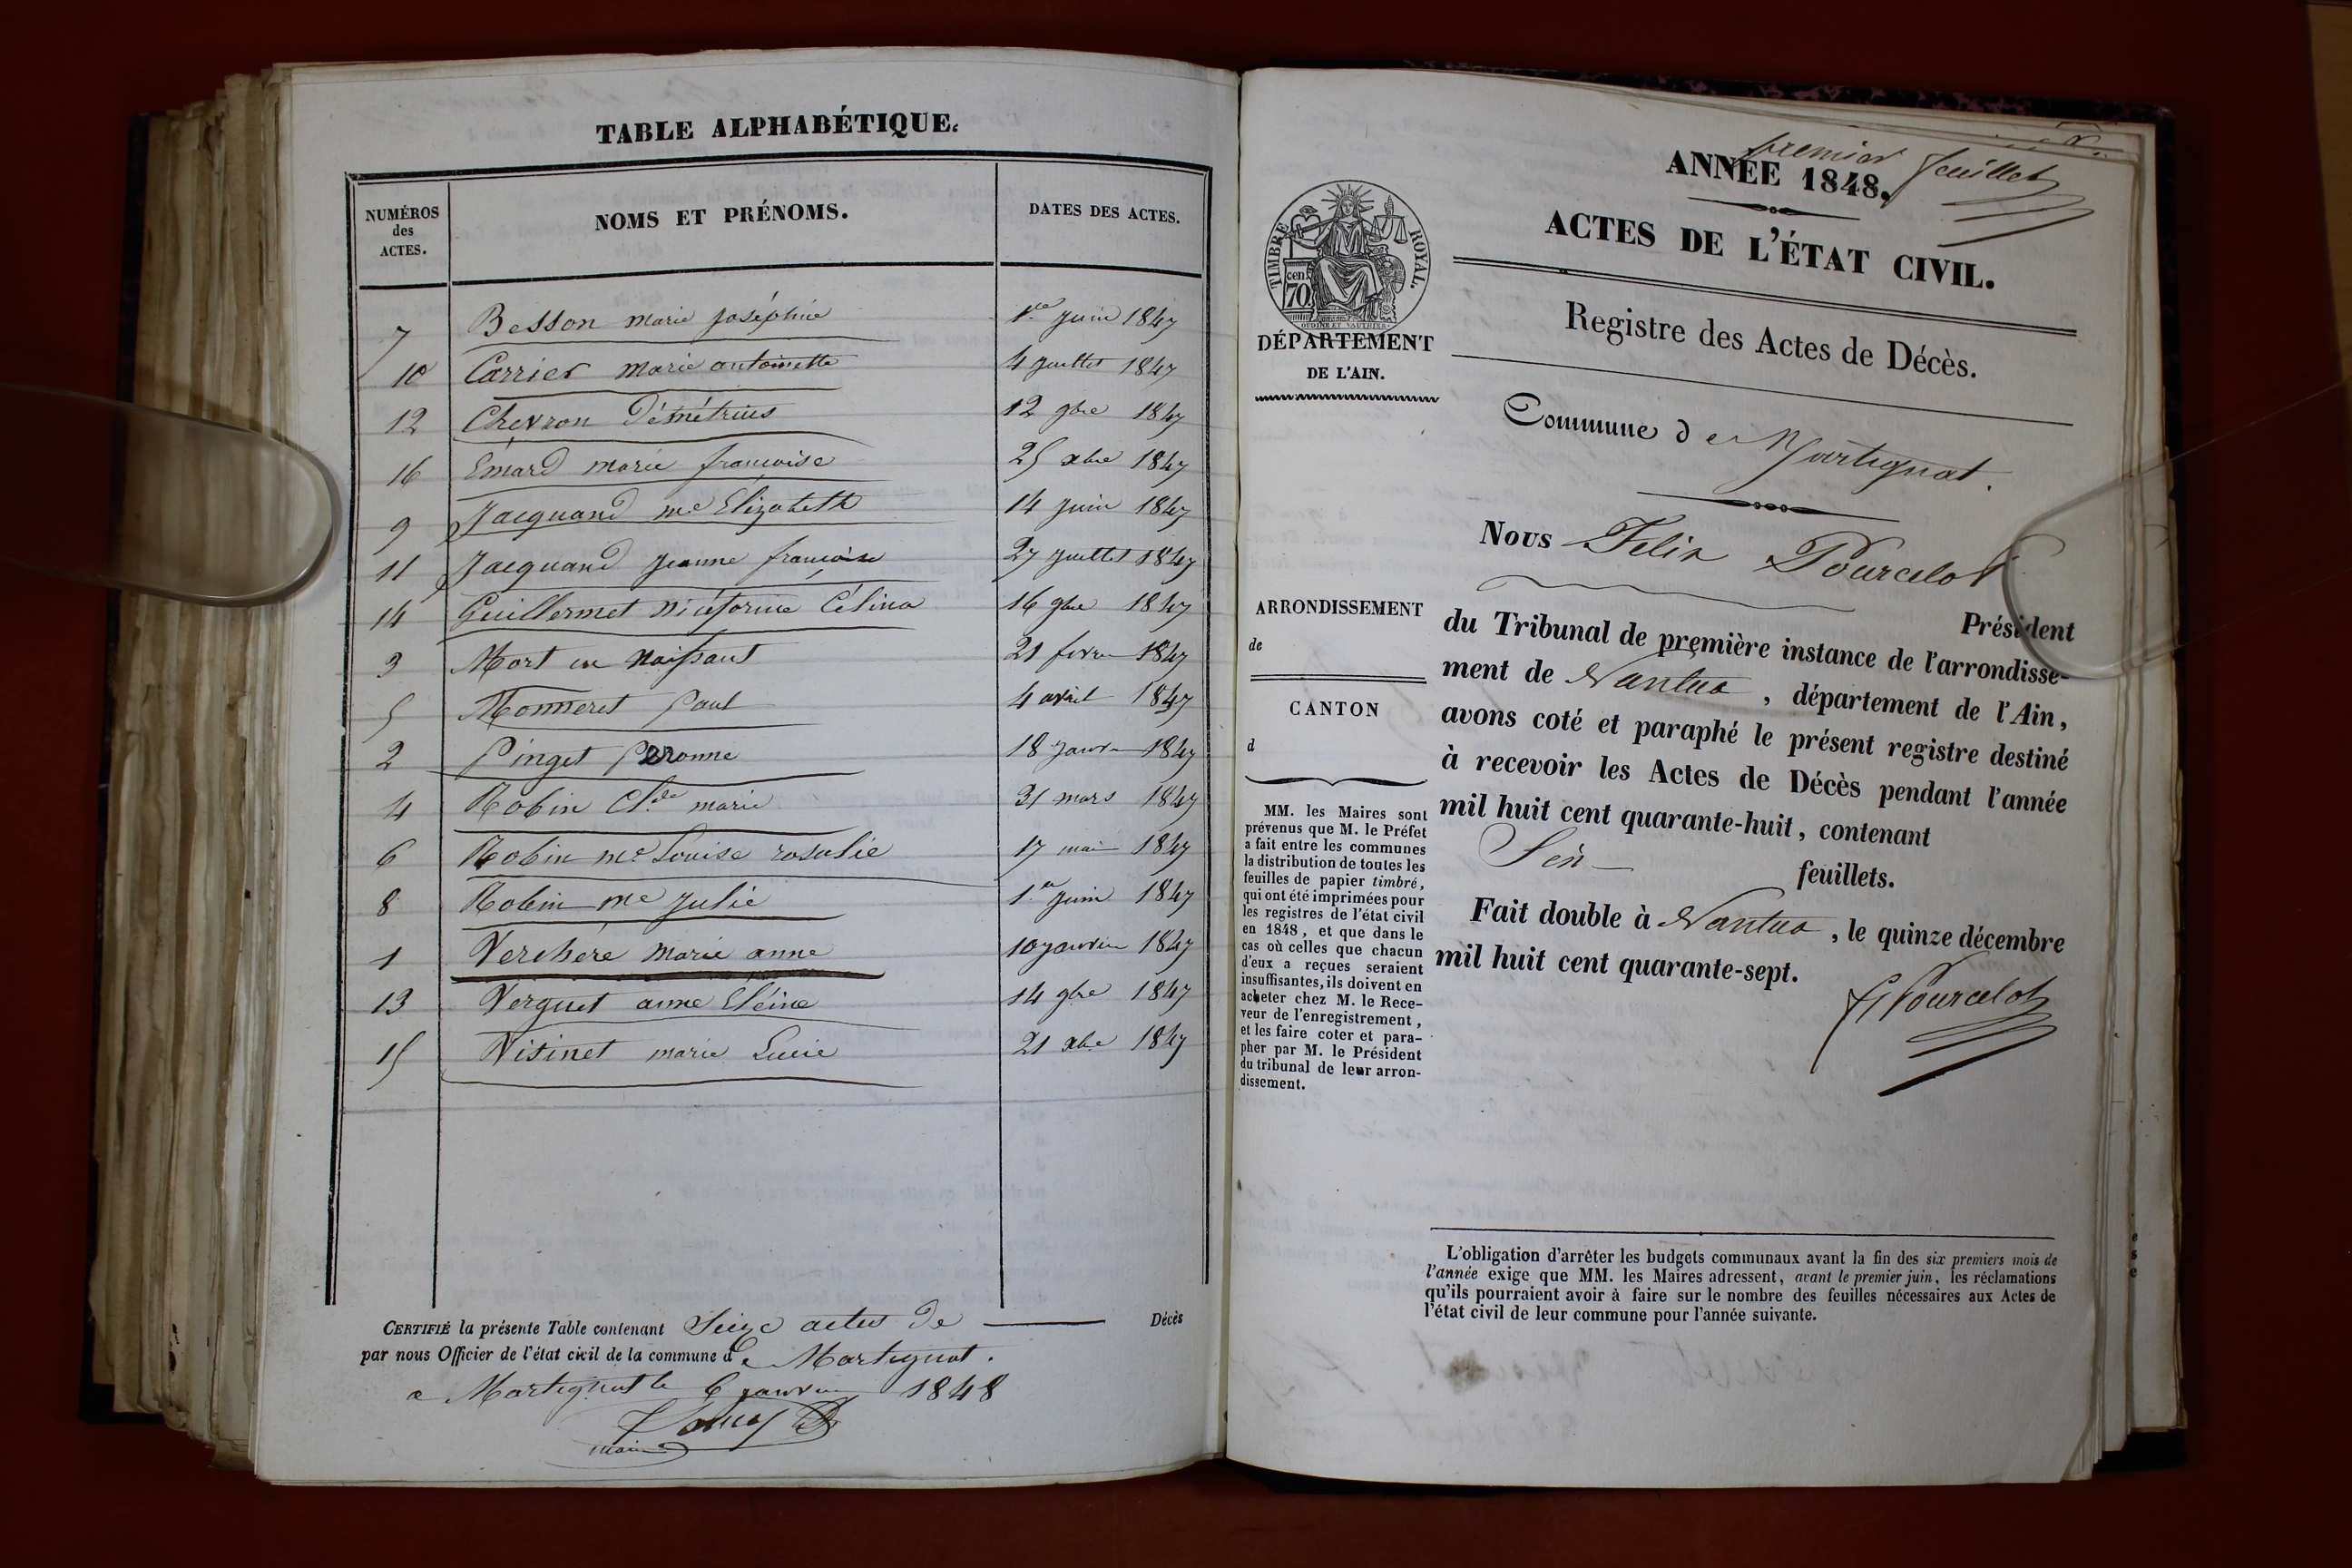 TABLE ALPHABÉTIQUE.
NUMÉROS des ACTES. NOMS ET PRÉNOMS. DATES DES ACTES.
7 Besson marie joséphine 1er juin 1847
10 Carrier marie antoinette 4 juillet 1847
12 Chevron Démétrius 12 9bre 1847
16 Émard marie françoise 25 xbre 1847
9 Jacquand me Élizabeth 14 juin 1847
11 Jacquand jeanne françoise 27 juillet 1847
14 Guillermet Célina 16 9bre 1847
3 Mort en Naissant 21 fevr 1847
5 Monneret paul 4 avril 1847
2 pinget peronne 18 janvr 1847
4 Robin Clde marie 31 mars 1847
6 Robin me Louise rosalie 17 mai 1847
8 Robin me julie 1er juin 1847
1 Verchère marie anne 10 janvier 1847
13 Verguet anne 14 9bre 1847
15 marie Lucie 21 xbre 1847
CERTIFIÉ la présente Table contenant Seize actes de Décès
par nous Officier de l'état civil de la commune de Martignat.
a Martignat le 6 janvier 1848
maire
premier feuillet
ANNÉE 1848.
ACTES DE L'ÉTAT CIVIL.
Registre des Actes de Décès.
TIMBRE ROYAL.
70 cen.
DÉPARTEMENT
DE L'AIN.
Commune de Martignat.
Nous Felix Pourcelot
Président
du Tribunal de première instance de l'arrondisse-
ment de Nantua, département de l'Ain,
avons coté et paraphé le présent registre destiné
à recevoir les Actes de Décès pendant l'année
mil huit cent quarante-huit, contenant
feuillets.
Fait double à Nantua, le quinze décembre
mil huit cent quarante-sept.
Pourcelot
ARRONDISSEMENT
de
CANTON
d
MM. les Maires sont
prévenus que M. le Préfet
a fait entre les communes
la distribution de toutes les
feuilles de papier timbré,
qui ont été imprimées pour
les registres de l'état civil
en 1848, et que dans le
cas où celles que chacun
d'eux a reçues seraient
insuffisantes, ils doivent en
acheter chez M. le Rece-
veur de l'enregistrement,
et les faire coter et para-
pher par M. le Président
du tribunal de leur arron-
dissement.
L'obligation d'arrêter les budgets communaux avant la fin des six premiers mois de
l'année exige que MM. les Maires adressent, avant le premier juin, les réclamations
qu'ils pourraient avoir à faire sur le nombre des feuilles nécessaires aux Actes de
l'état civil de leur commune pour l'année suivante.